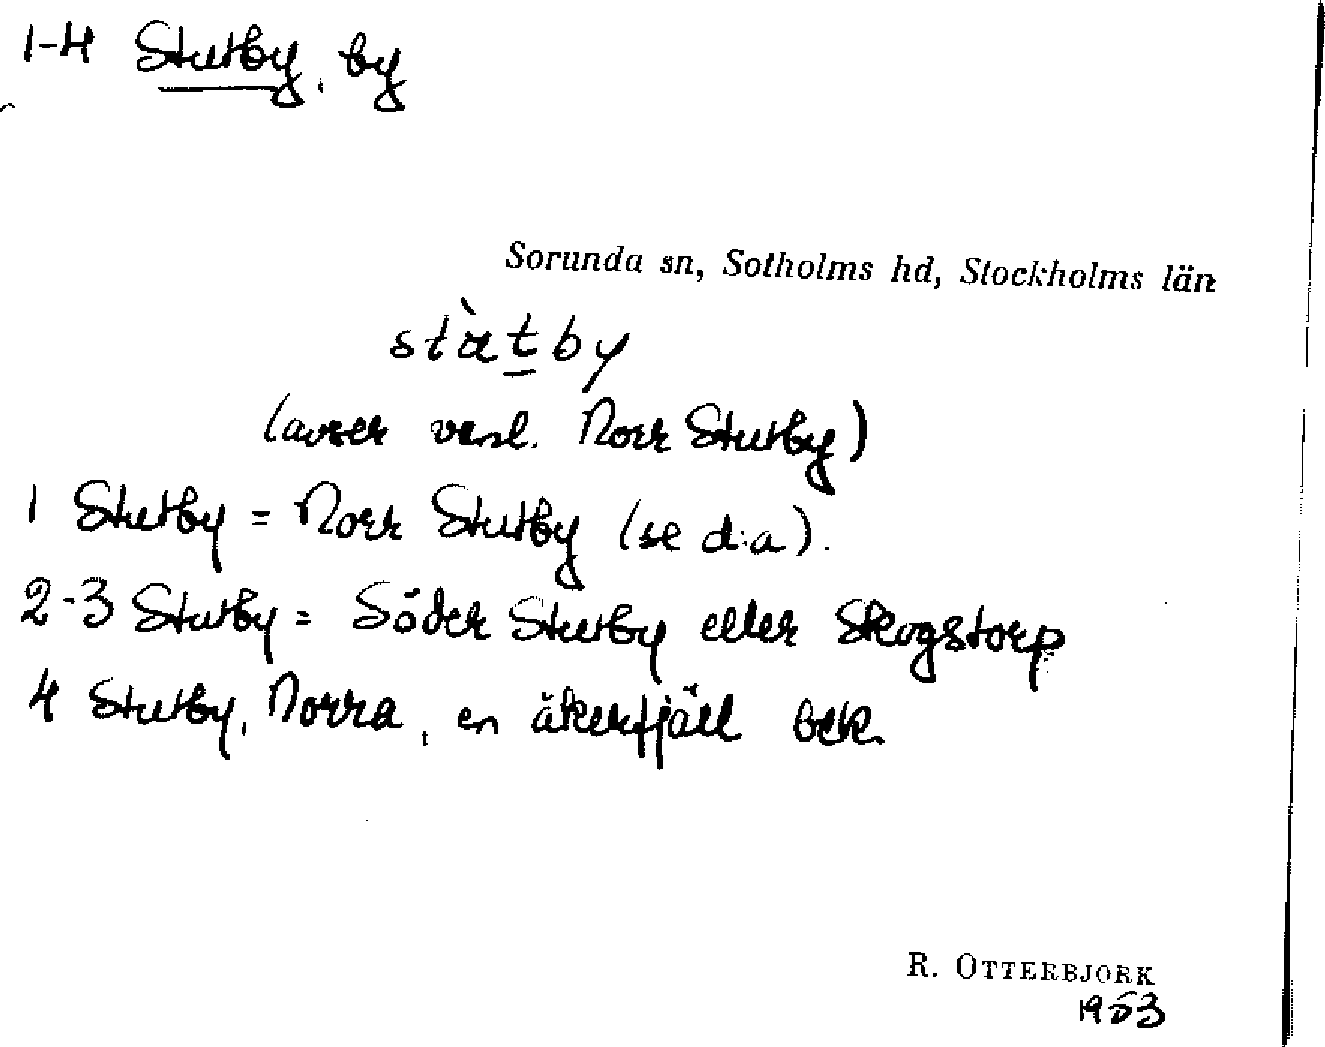 1-4 Stutby, by
Sorunda sn, Sotholms hd, Stockholms län
stùtby
(avser vanl. Norr Stutby)
1 Stutby = Norr Stutby (se d:a).
2-3 Stutby = Söder Stutby eller Skogstorp
4 Stutby, Norra, en åkerfjäll bek.
R. OTTERBJÖRK
1953